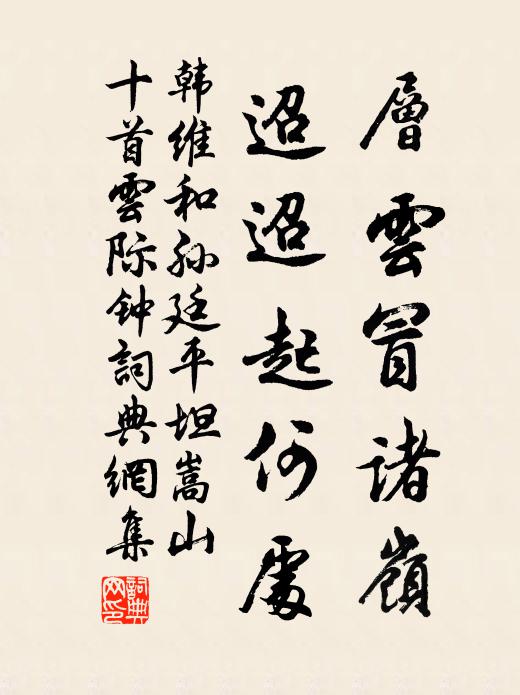 層雲冒诸嶺
迢迢起何處
韩维和孙廷平坦嵩山
十首雲际钟詞典網集
詞典网印